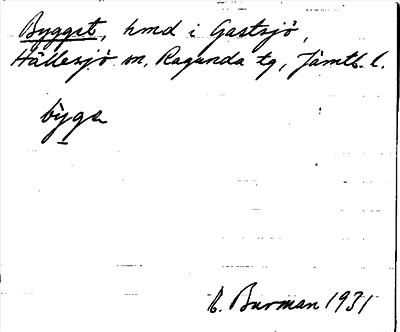 Bygget, hmd i Gastsjö,
Hällesjö sn, Ragunda tg, Jämtl. l.
bỳga
C. Burman 1931